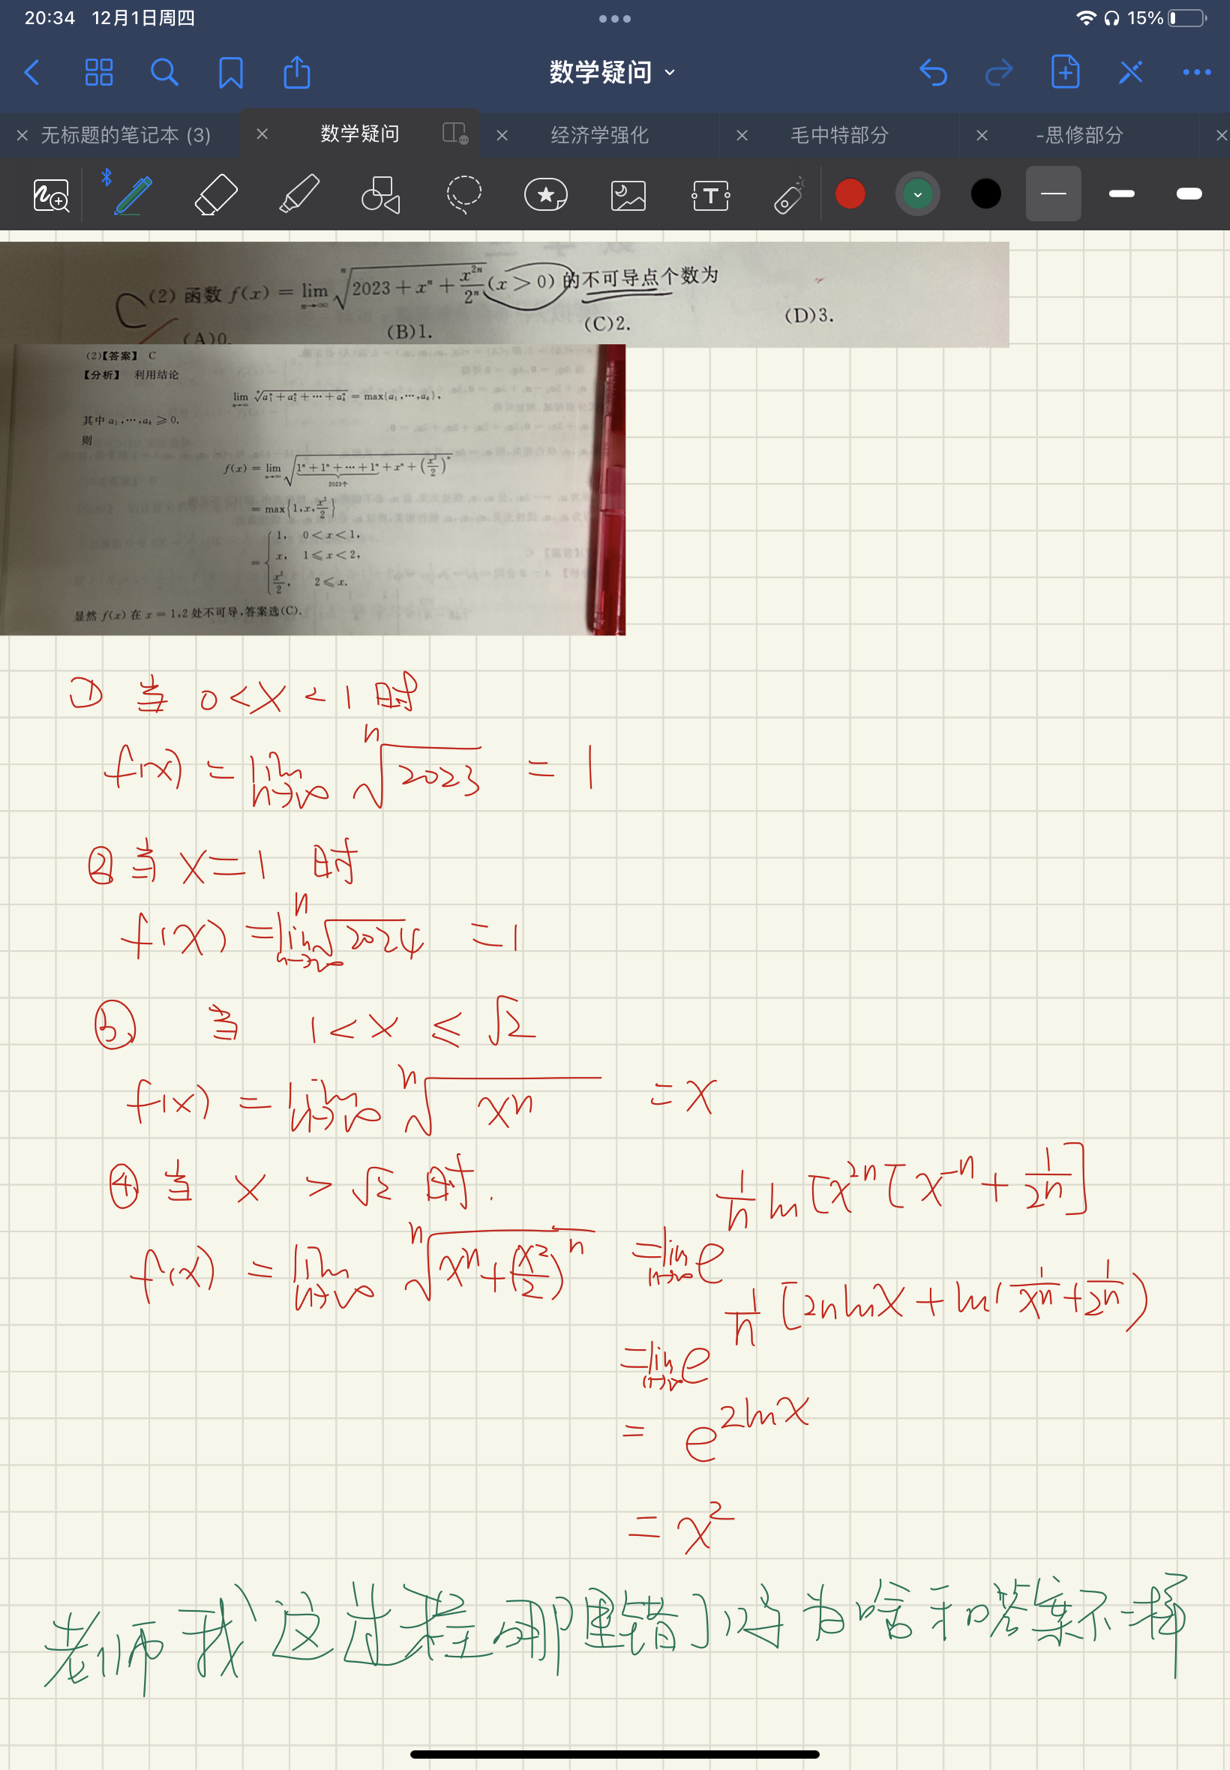 20:34 12月1日周四
15%
数学疑问
无标题的笔记本 (3)
数学疑问
经济学强化
毛中特部分
-思修部分
C (2) 函数 f(x) = lim_{n→∞} ⁿ√(2023 + xⁿ + x²ⁿ/2ⁿ) (x > 0) 的不可导点个数为
(A)0. (B)1. (C)2. (D)3.
(2)【答案】 C
【分析】 利用结论
lim_{n→∞} ⁿ√(a₁ⁿ + a₂ⁿ + ⋯ + aₖⁿ) = max{a₁,⋯,aₖ},
其中 a₁,⋯,aₖ ⩾ 0.
则
f(x) = lim_{n→∞} ⁿ√(1ⁿ + 1ⁿ + ⋯ + 1ⁿ + xⁿ + (x²/2)ⁿ)
2023个
= max{1, x, x²/2}
= { 1, 0 < x < 1,
x, 1 ⩽ x < 2,
x²/2, 2 ⩽ x.
显然 f(x) 在 x = 1,2 处不可导,答案选(C).
① 当 0 < x < 1 时
f(x) = lim_{n→∞} ⁿ√2023 = 1
② 当 x = 1 时
f(x) = lim_{n→∞} ⁿ√2024 = 1
③ 当 1 < x ≤ √2
f(x) = lim_{n→∞} ⁿ√(xⁿ) = x
④ 当 x > √2 时.
f(x) = lim_{n→∞} ⁿ√(xⁿ + (x²/2)ⁿ) = lim_{n→∞} e^{1/n ln[x²ⁿ[x⁻ⁿ + 1/2ⁿ]}
= lim_{n→∞} e^{1/n [2nlnx + ln(1/xⁿ + 1/2ⁿ)}
= e^{2lnx}
= x²
老师我这过程哪里错了呀 为啥和答案不一样